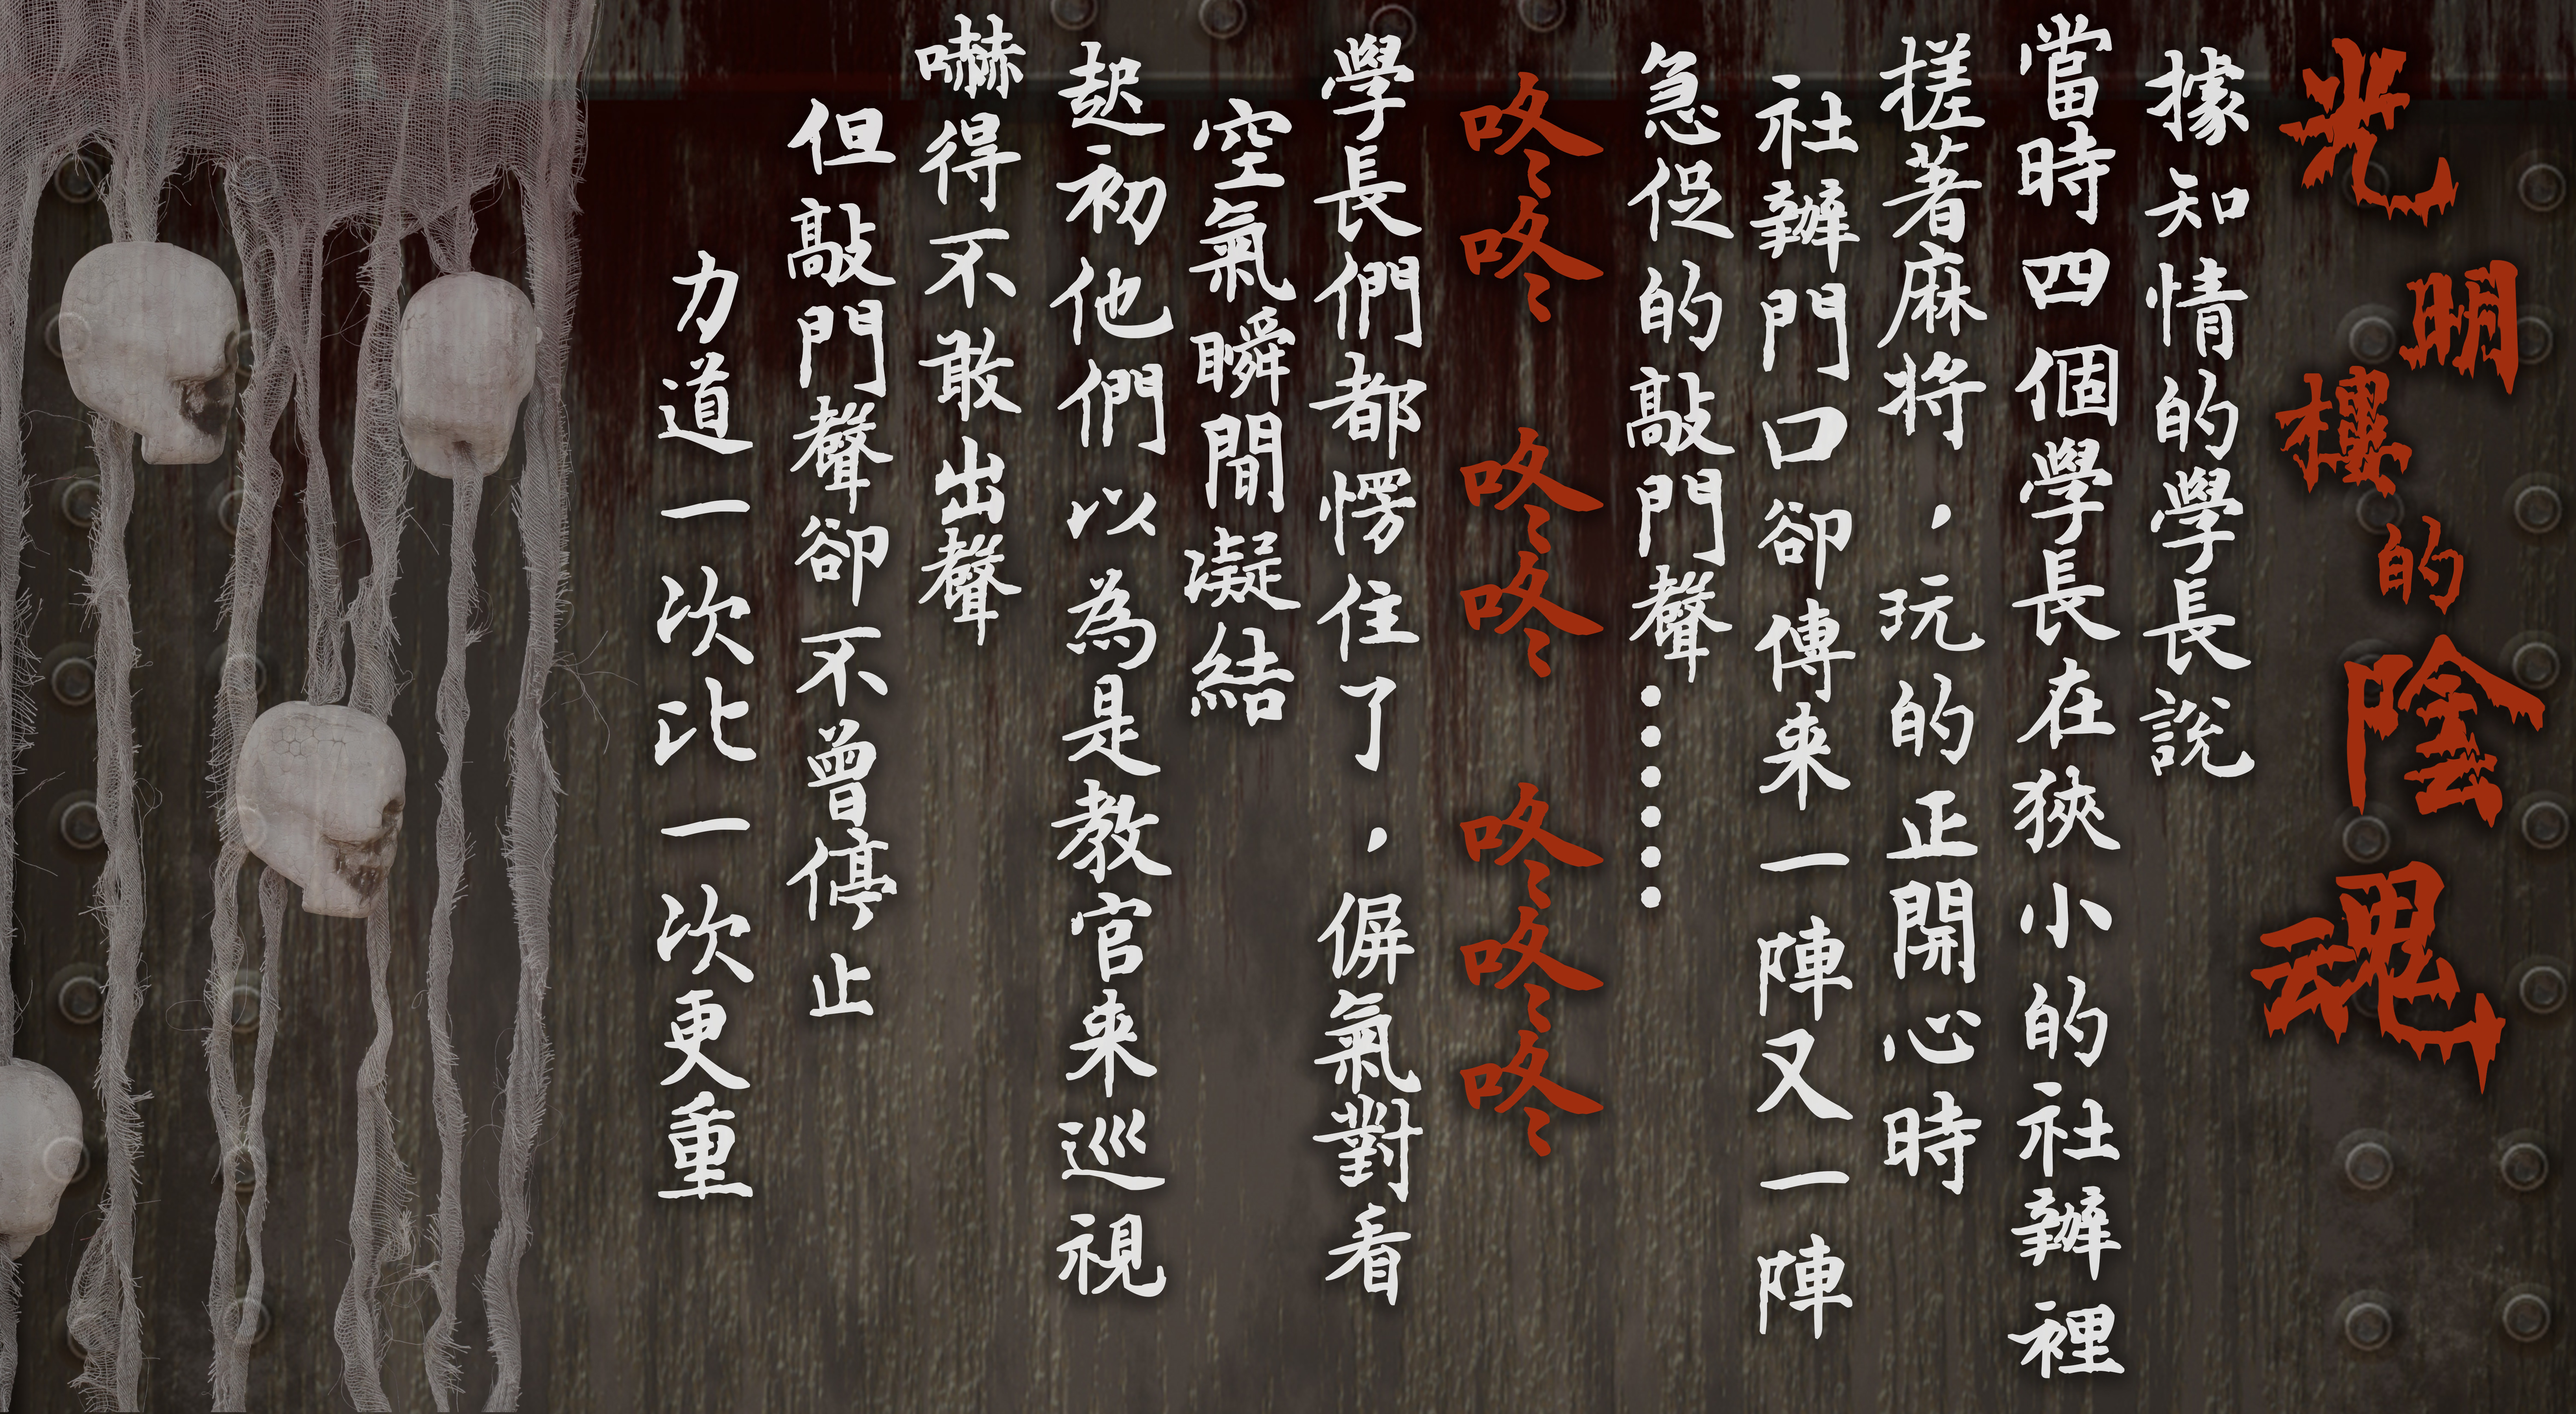 光明樓的陰魂
據知情的學長說
當時四個學長在狹小的社辦裡
搓著麻將，玩的正開心時
社辦門口卻傳来一陣又一陣
急促的敲門聲……
咚咚 咚咚 咚咚咚
學長們都愣住了，偋氣對看
空氣瞬間凝結
起初他們以為是教官来巡視
嚇得不敢出聲
但敲門聲卻不曾停止
力道一次比一次更重